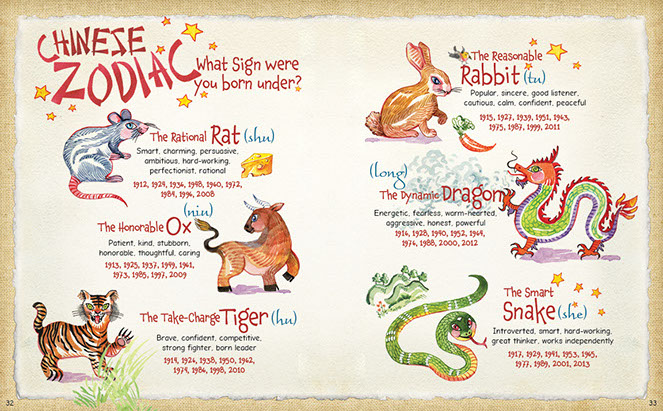 CHINESE
ZODIAC
What Sign were
you born under?
The Rational Rat (shu)
Smart, charming, persuasive,
ambitious, hard-working,
perfectionist, rational
1912, 1924, 1936, 1948, 1960, 1972,
1984, 1996, 2008
(niu)
The Honorable Ox
Patient, kind, stubborn,
honorable, thoughtful, caring
1913, 1925, 1937, 1949, 1961,
1973, 1985, 1997, 2009
The Take-Charge Tiger (hu)
Brave, confident, competitive,
strong fighter, born leader
1914, 1926, 1938, 1950, 1962,
1974, 1986, 1998, 2010
32
The Reasonable
Rabbit (tu)
Popular, sincere, good listener,
cautious, calm, confident, peaceful
1915, 1927, 1939, 1951, 1963,
1975, 1987, 1999, 2011
(long)
The Dynamic Dragon
Energetic, fearless, warm-hearted,
aggressive, honest, powerful
1916, 1928, 1940, 1952, 1964,
1976, 1988, 2000, 2012
The Smart
Snake (she)
Introverted, smart, hard-working,
great thinker, works independently
1917, 1929, 1941, 1953, 1965,
1977, 1989, 2001, 2013
33